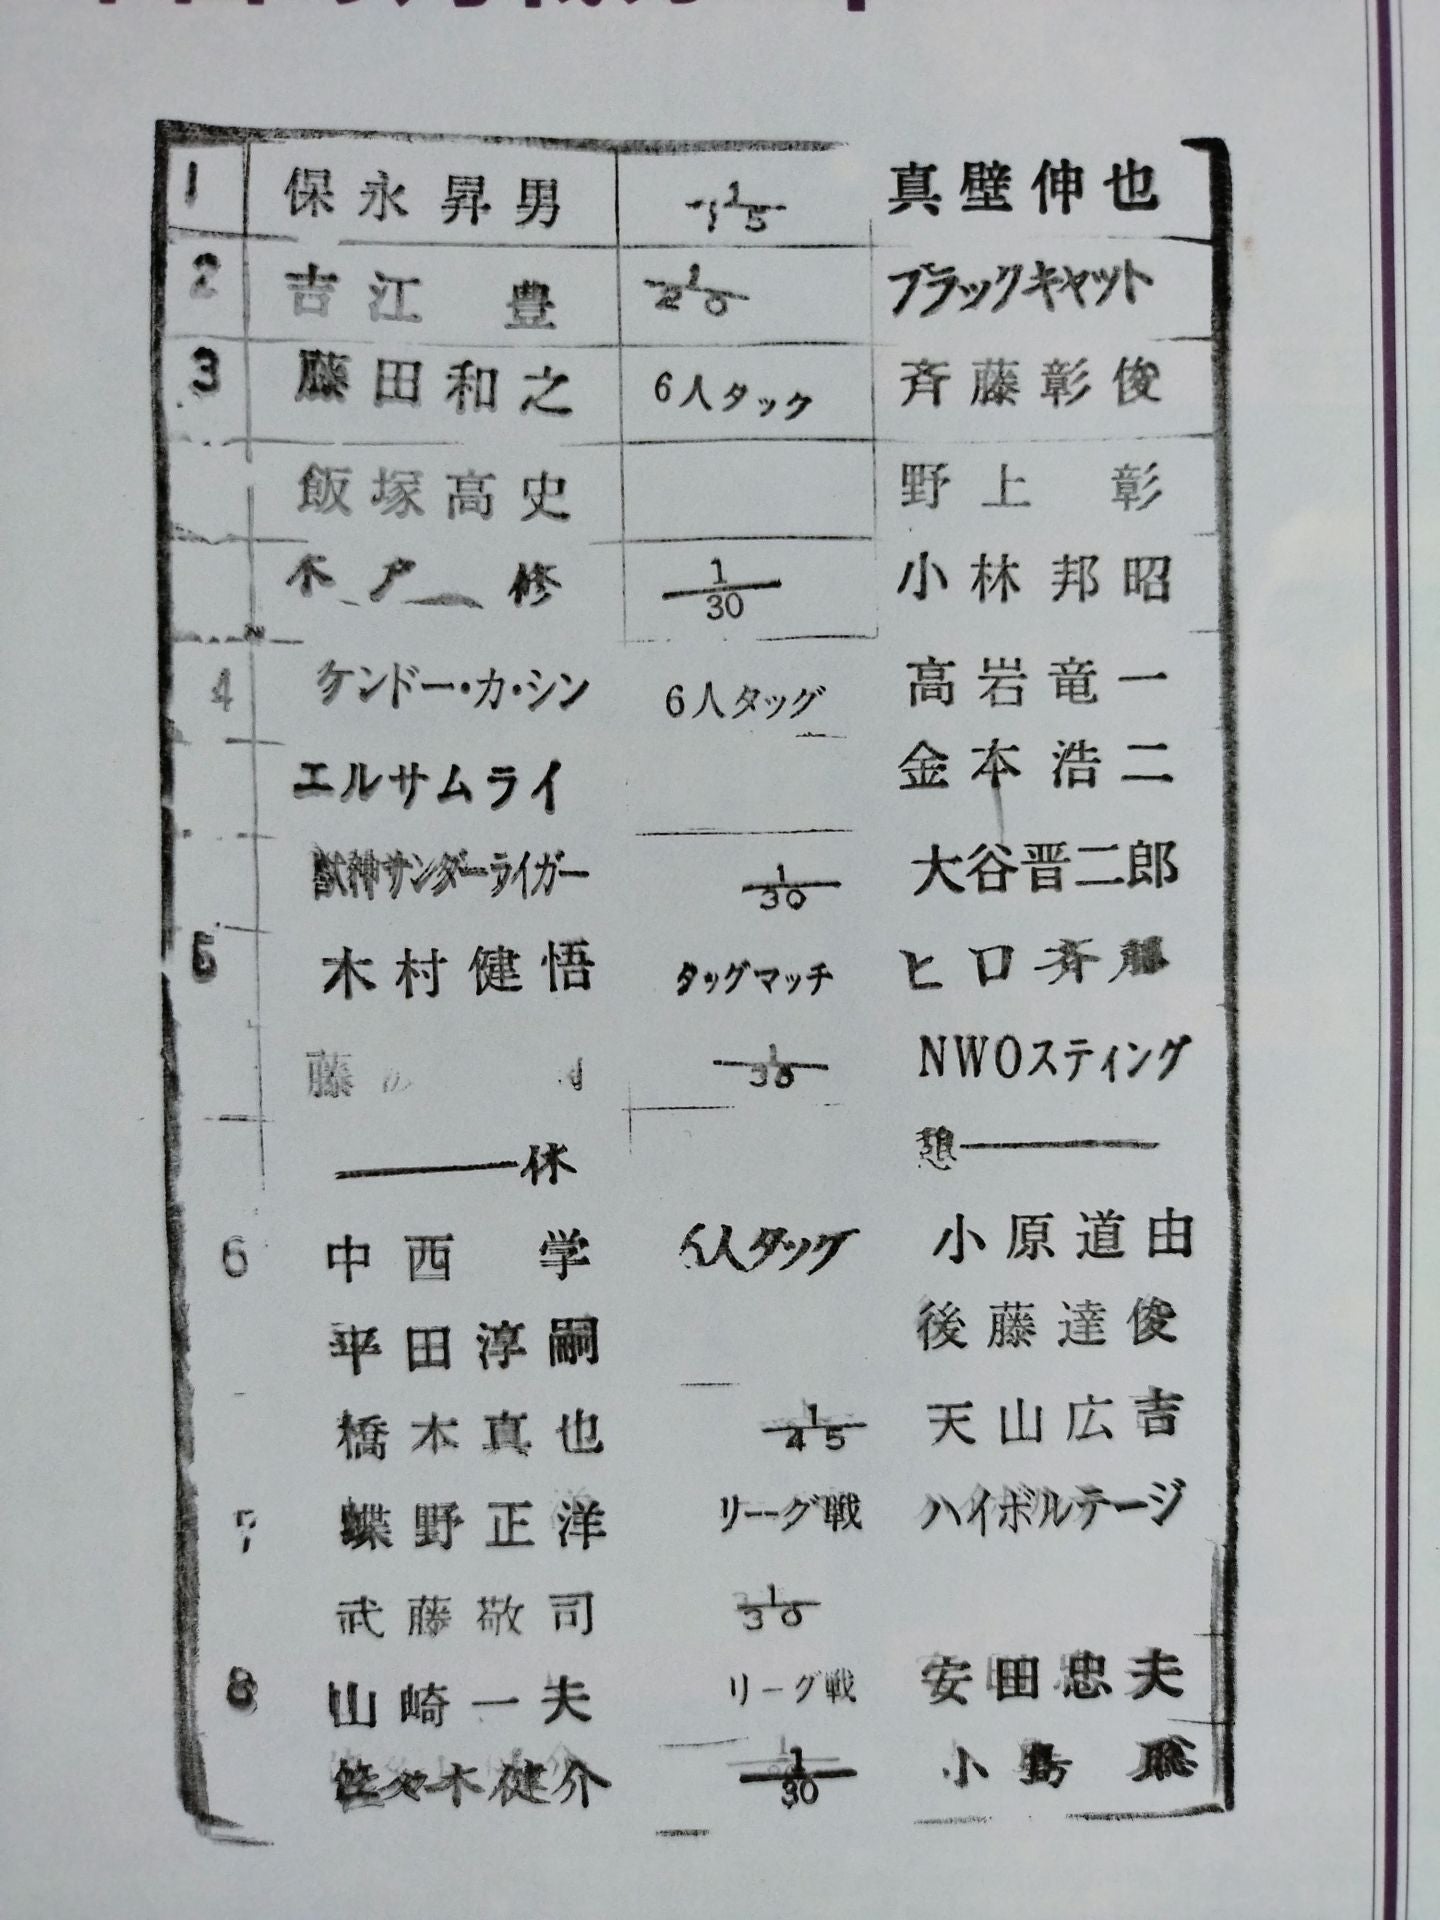 1 保永昇男 1/15 真壁伸也
2 吉江 豊 1/20 ブラックキャット
3 藤田和之 6人タック 斉藤彰俊
飯塚高史 野上 彰
木戸 修 1/30 小林邦昭
4 ケンドー・カ・シン 6人タッグ 高岩竜一
エルサムライ 金本浩二
獣神サンダーライガー 1/30 大谷晋二郎
5 木村健悟 タッグマッチ ヒロ斉藤
藤 1/30 NWOスティング
休 憩
6 中西 学 人タッグ 小原道由
平田淳嗣 後藤達俊
橋本真也 1/45 天山広吉
7 蝶野正洋 リーグ戦 ハイボルテージ
武藤敬司 1/30
8 山崎一夫 リーグ戦 安田忠夫
佐々木健介 1/30 小島 聡